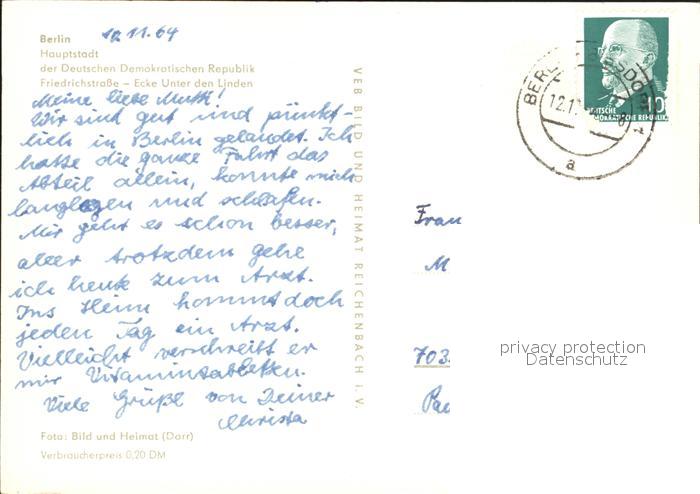 Berlin 10.11.64
Hauptstadt
der Deutschen Demokratischen Republik
Friedrichstraße – Ecke Unter den Linden
Meine liebe Mutti!
Wir sind gut und pünkt-
lich in Berlin gelandet. Ich
hatte die ganze Fahrt das
Abteil allein, konnte mich
langlegen und schlafen.
Mir geht es schon besser,
aber trotzdem gehe
ich heute zum Arzt.
Ins Heim kommt doch
jeden Tag ein Arzt.
Vielleicht verschreibt er
mir Vitamintabletten.
Viele Grüße von Deiner
Christa
Foto: Bild und Heimat (Darr)
Verbraucherpreis 0,20 DM
VEB BILD UND HEIMAT REICHENBACH i. V.
12.11
a
10
DEUTSCHE
DEMOKRATISCHE REPUBLIK
Frau
M
703
privacy protection
Datenschutz